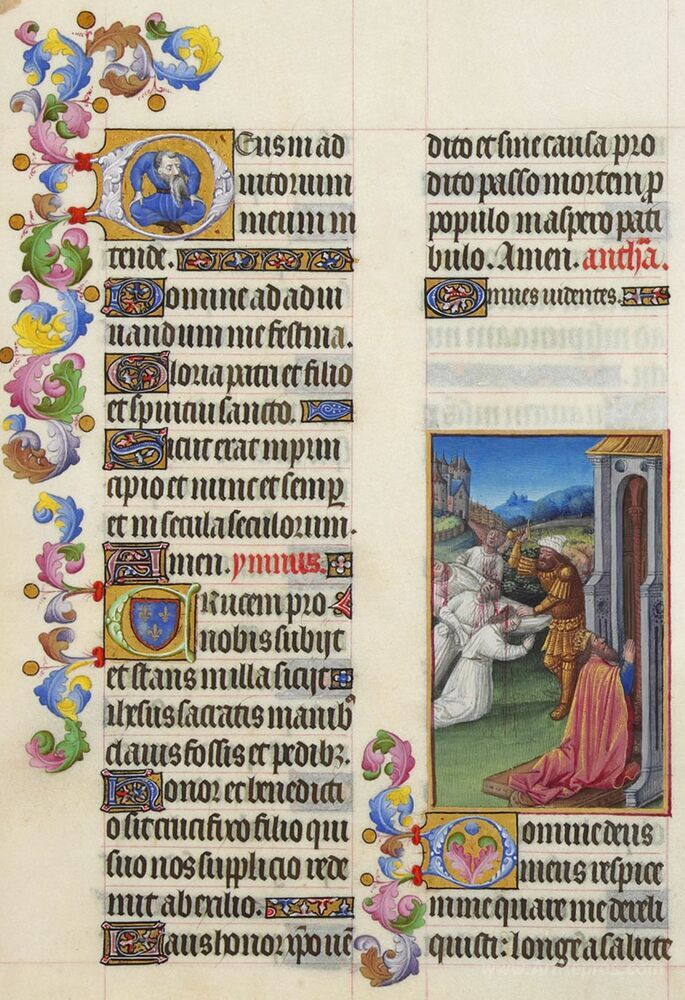 Deus in ad
iutorium
meum in
tende.
Domine ad adiu
uandum me festina.
Gloria patri et filio
et spiritui sancto.
Sicut erat in prin
cipio et nunc et semꝑ
et in secula seculorum.
Amen. ymnus.
Crucem pro
nobis subijt
et stans in illa sicijt
ihesus sacratis manibꝰ
clauis fossis et pedibꝫ.
Honor et benedicti
o sit crucifixo filio qui
suo nos supplicio rede
mit ab exilio.
Laus honor xp̄o uen̄
dito et sine causa pro
dito passo mortem ꝓ
populo in aspero pati
bulo. Amen. antħa.
Omnes uidentes.
Domine deus
meus respice
in me quare me dereli
quisti: longe a salute